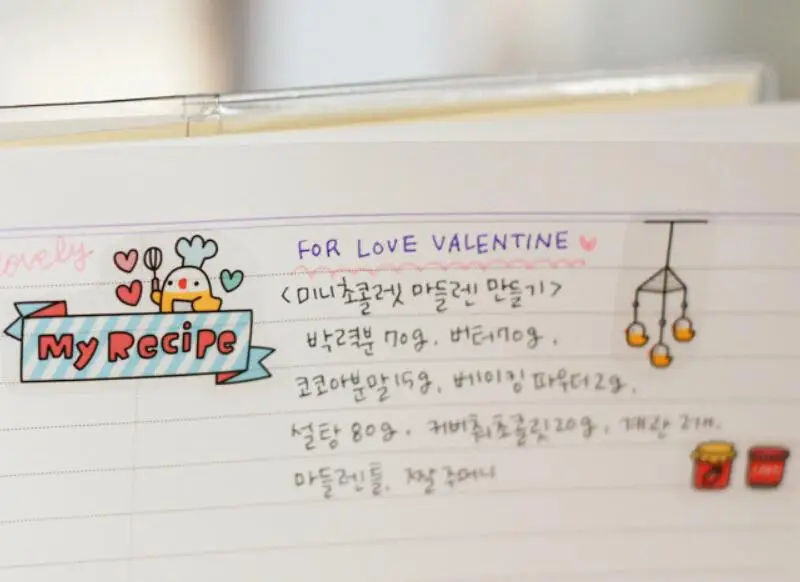 lovely
My Recipe
FOR LOVE VALENTINE
<미니초콜렛 마들렌 만들기>
박력분 70g, 버터 70g,
코코아분말 15g, 베이킹 파우더 2g,
설탕 80g, 커버춰초콜릿 20g, 계란 2개.
마들렌틀, 짤주머니